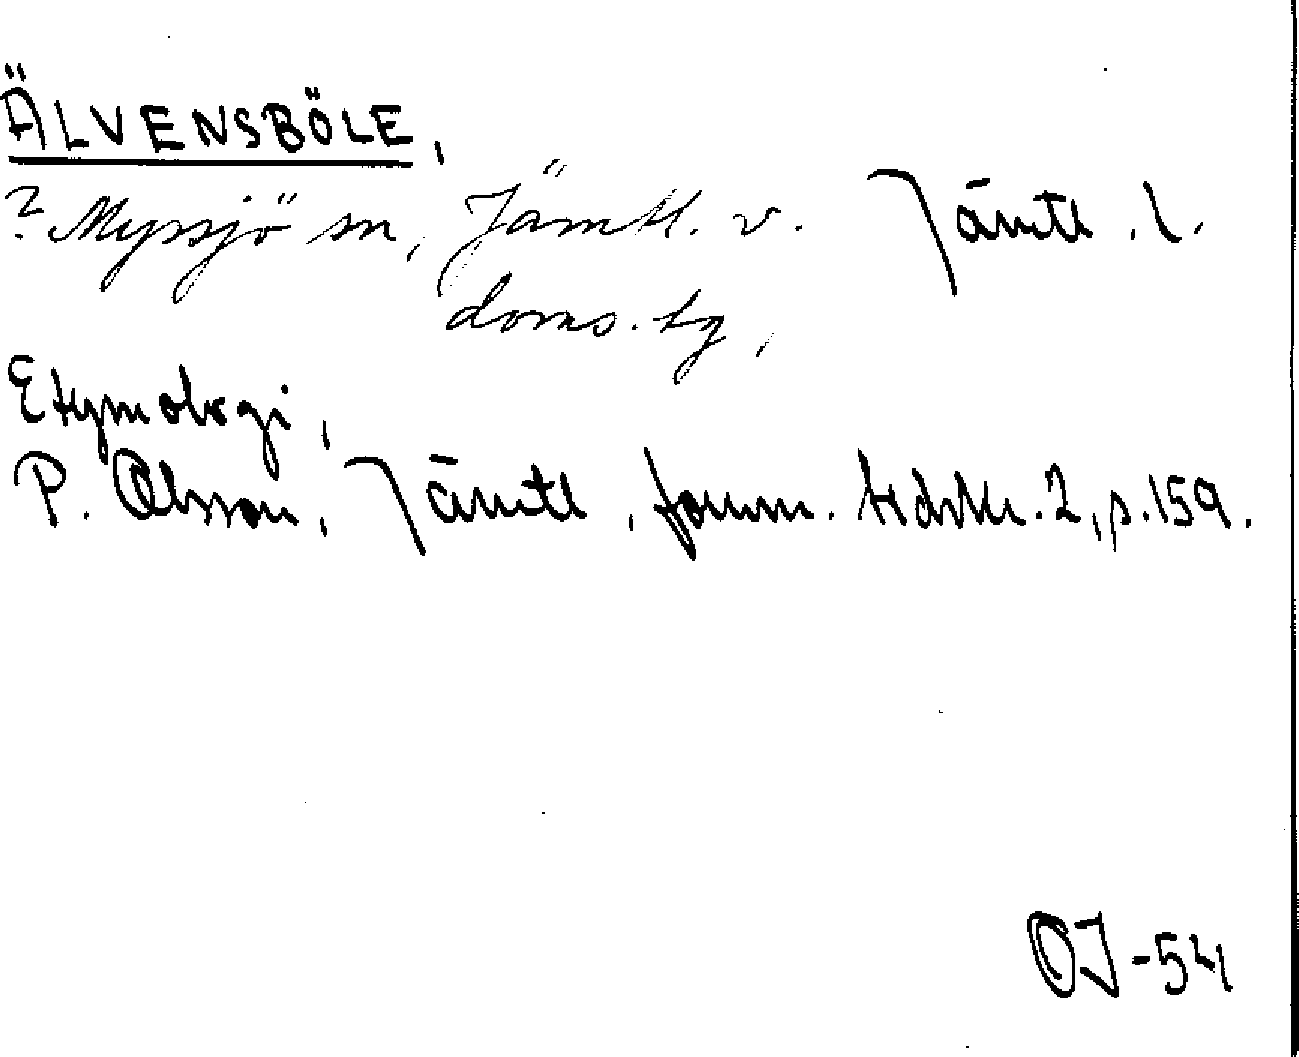 ÄLVENSBÖLE,
? Myssjö sn, Jämtl. v. Jämtl. l.
doms. tg,
Etymologi,
P. Olsson, Jämtl. fornm. tidskr. 2, p. 159.
OJ-54